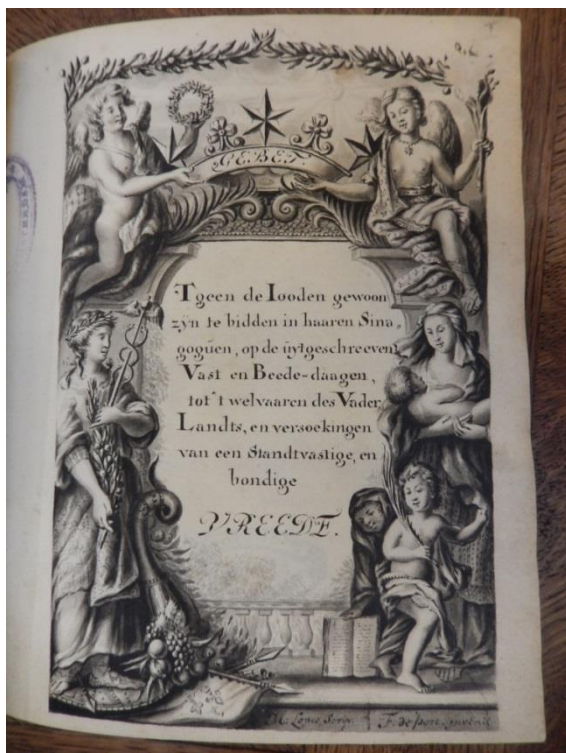 GEBET.
Tgeen de Iooden gewoon
zÿn te bidden in haaren Sina„
gogüen, op de üytgeschreeven
Vast en Beede-daagen,
tot 't welvaaren des Vader„
Landts, en versoekingen
van een Standtvastige, en
bondige
VREEDE.
M: Lopes Scrip. F. de Port. invenit